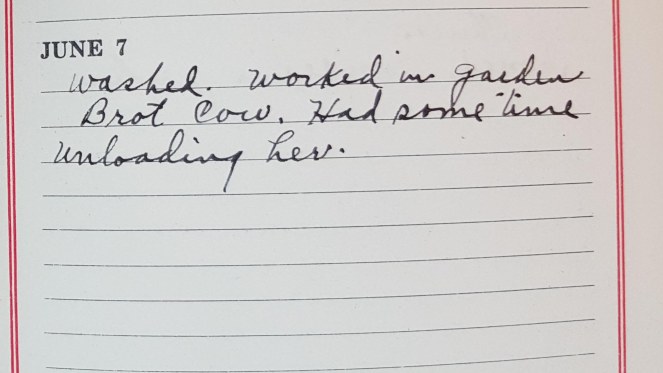 JUNE 7
washed. Worked in garden
Brot Cow. Had some time
unloading her.